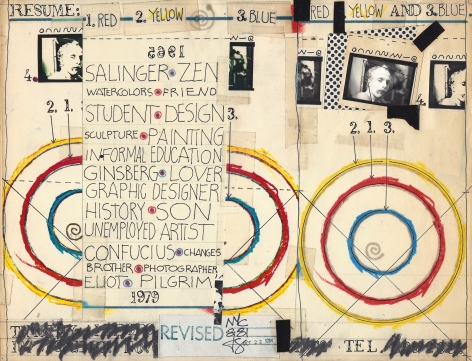 RESUME:
1. RED 2. YELLOW 3. BLUE
RED YELLOW AND 3. BLUE
1965
4.
SALINGER ZEN
WATERCOLORS FRIEND
STUDENT DESIGN
2. 1. 3.
SCULPTURE PAINTING
2. 1. 3.
INFORMAL EDUCATION
GINSBERG LOVER
GRAPHIC DESIGNER
HISTORY SON
UNEMPLOYED ARTIST
CONFUCIUS CHANGES
BROTHER PHOTOGRAPHER
ELIOT PILGRIM
1979
REVISED
TEL.